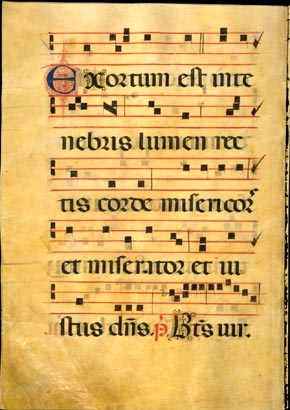 Exortum est inte
nebris lumen rec
tis corde misericor
et miserator et iu
stus dñs. p. Bt̄s uir.